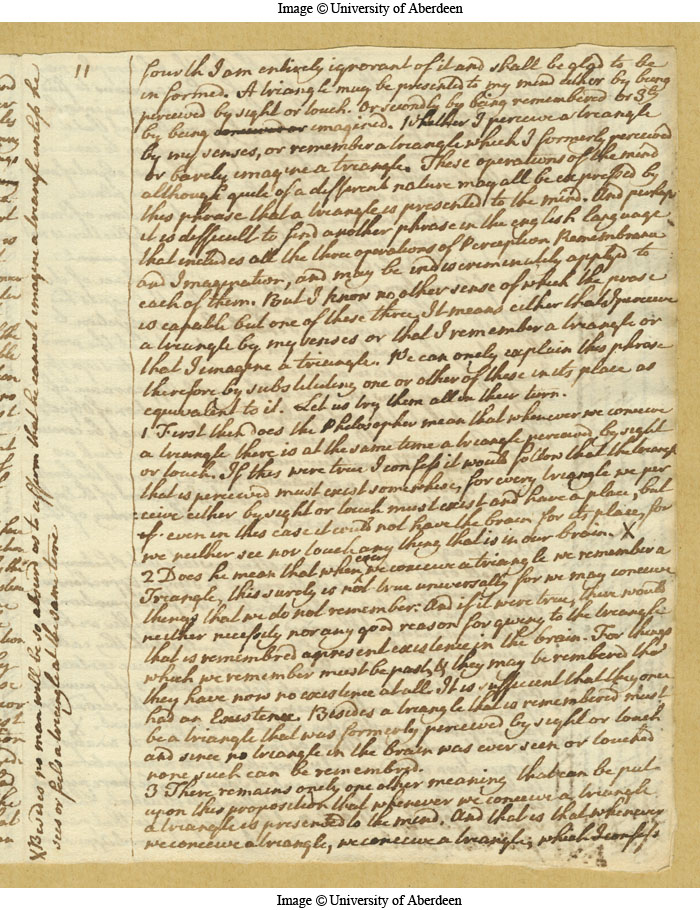 Image © University of Aberdeen
11
fourth I am entirely ignorant of it and shall be glad to be
informed. A triangle may be presented to my mind either by being
perceived by sight or touch. Or secondly by being remembered or 3dly
by being conceived or imagined. Whether I perceive a triangle
by my senses, or remember a triangle which I formerly perceived
or barely imagine a triangle. These operations of the mind
although quite of a different nature may all be expressed by
this phrase that a triangle is presented to the mind. And perhaps
it is difficult to find another phrase in the english language
that includes all the three operations of Perception Remembrance
and Imagination, and may be indiscriminately applied to
each of them. But I know no other sense of which the phrase
is capable but one of these three, It means either that I perceive
a triangle by my senses or that I remember a triangle or
that I imagine a triangle. We can onely explain this phrase
therefore by substituting one or other of these in its place as
equivalent to it. Let us try them all in their turn.
1 First then does the Philosopher mean that whenever we conceive
a triangle there is at the same time a triangle perceived by sight
or touch. If this were true I confess it would follow that the triangle
that is perceived must exist somewhere, for every triangle we per
ceive either by sight or touch must exist and have a place, but
even in this case it could not have the brain for its place, for
we neither see nor touch any thing that is in our brain. X
2 Does he mean that when ever we conceive a triangle we remember a
Triangle, this surely is not true universally for we may conceive
things that we do not remember. And if it were true, there would
neither necessity nor any good reason for giving to the triangle
that is remembred a present existence in the brain. For things
which we remember must be past, & they may be remembred tho
they have now no existence at all. It is sufficient that they once
had an Existence. Besides a triangle that is remembered must
be a triangle that was formerly perceived by sight or touch
and since no triangle in the brain was ever seen or touched
none such can be remembred.
3 There remains onely one other meaning that can be put
upon this proposition that whenever we conceive a triangle
a triangle is presented to the mind. And that is that whenever
we conceive a triangle, we conceive a triangle, which I confess
X Besides no man will be so absurd as to affirm that he cannot imagine a triangle unless he
sees or feels a triangle at the same time
Image © University of Aberdeen